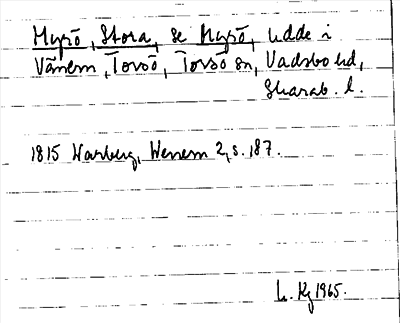 Myrö, Stora, se Myrö, udde i
Vänern, Torsö, Torsö sn, Vadsbo hd,
Skarab. l.
1815 Warberg, Wenern 2, s. 187.
L. Hg 1965.